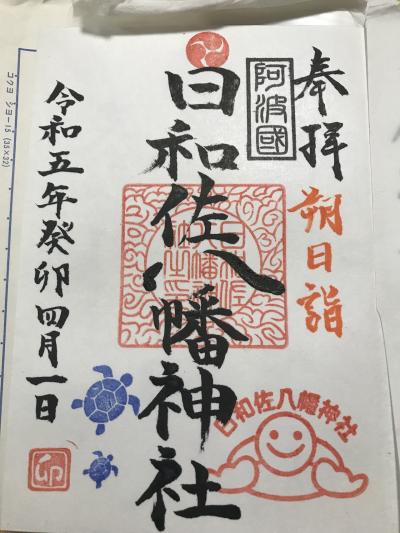 奉拝
朔日詣
阿波國
日和佐八幡神社
令和五年癸卯四月一日
卯
日和佐八幡神社
コクヨ ショー15 (35×32)